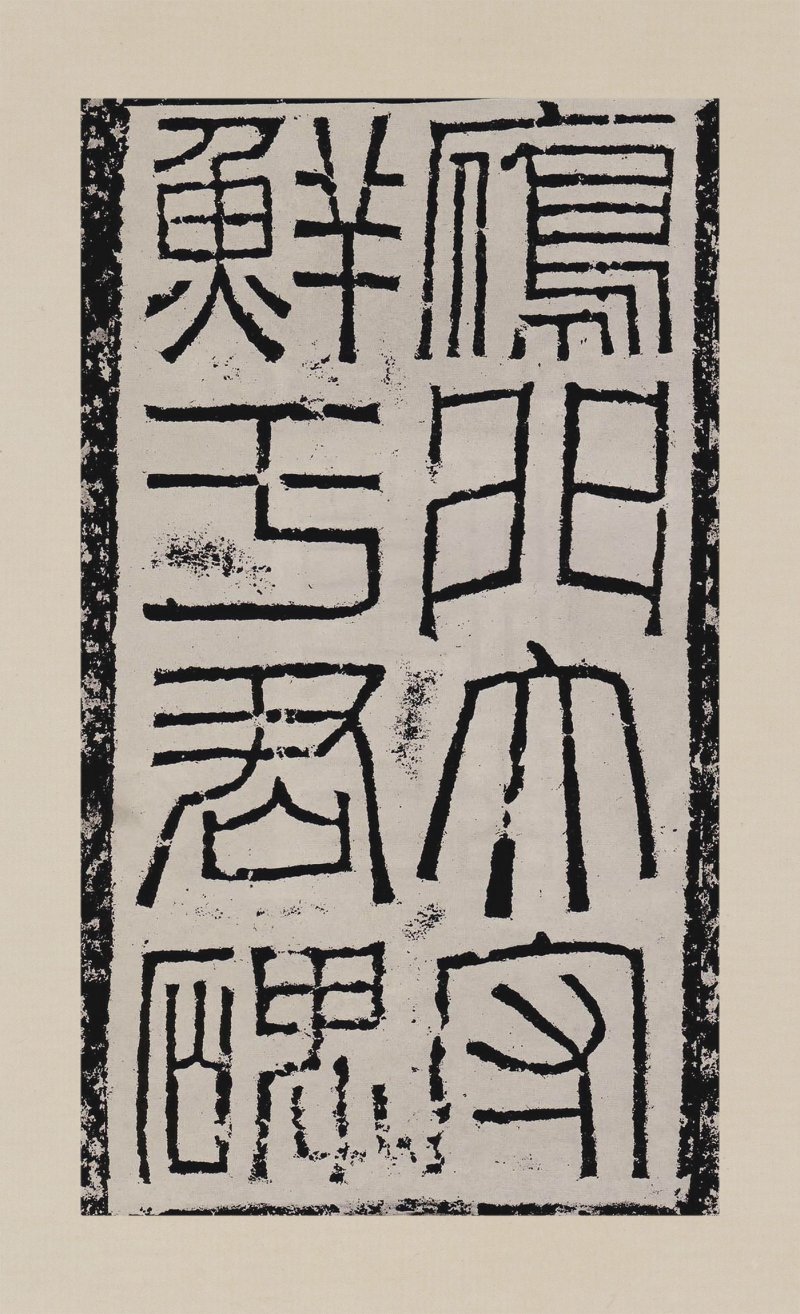 鴈門大守
鮮于君碑